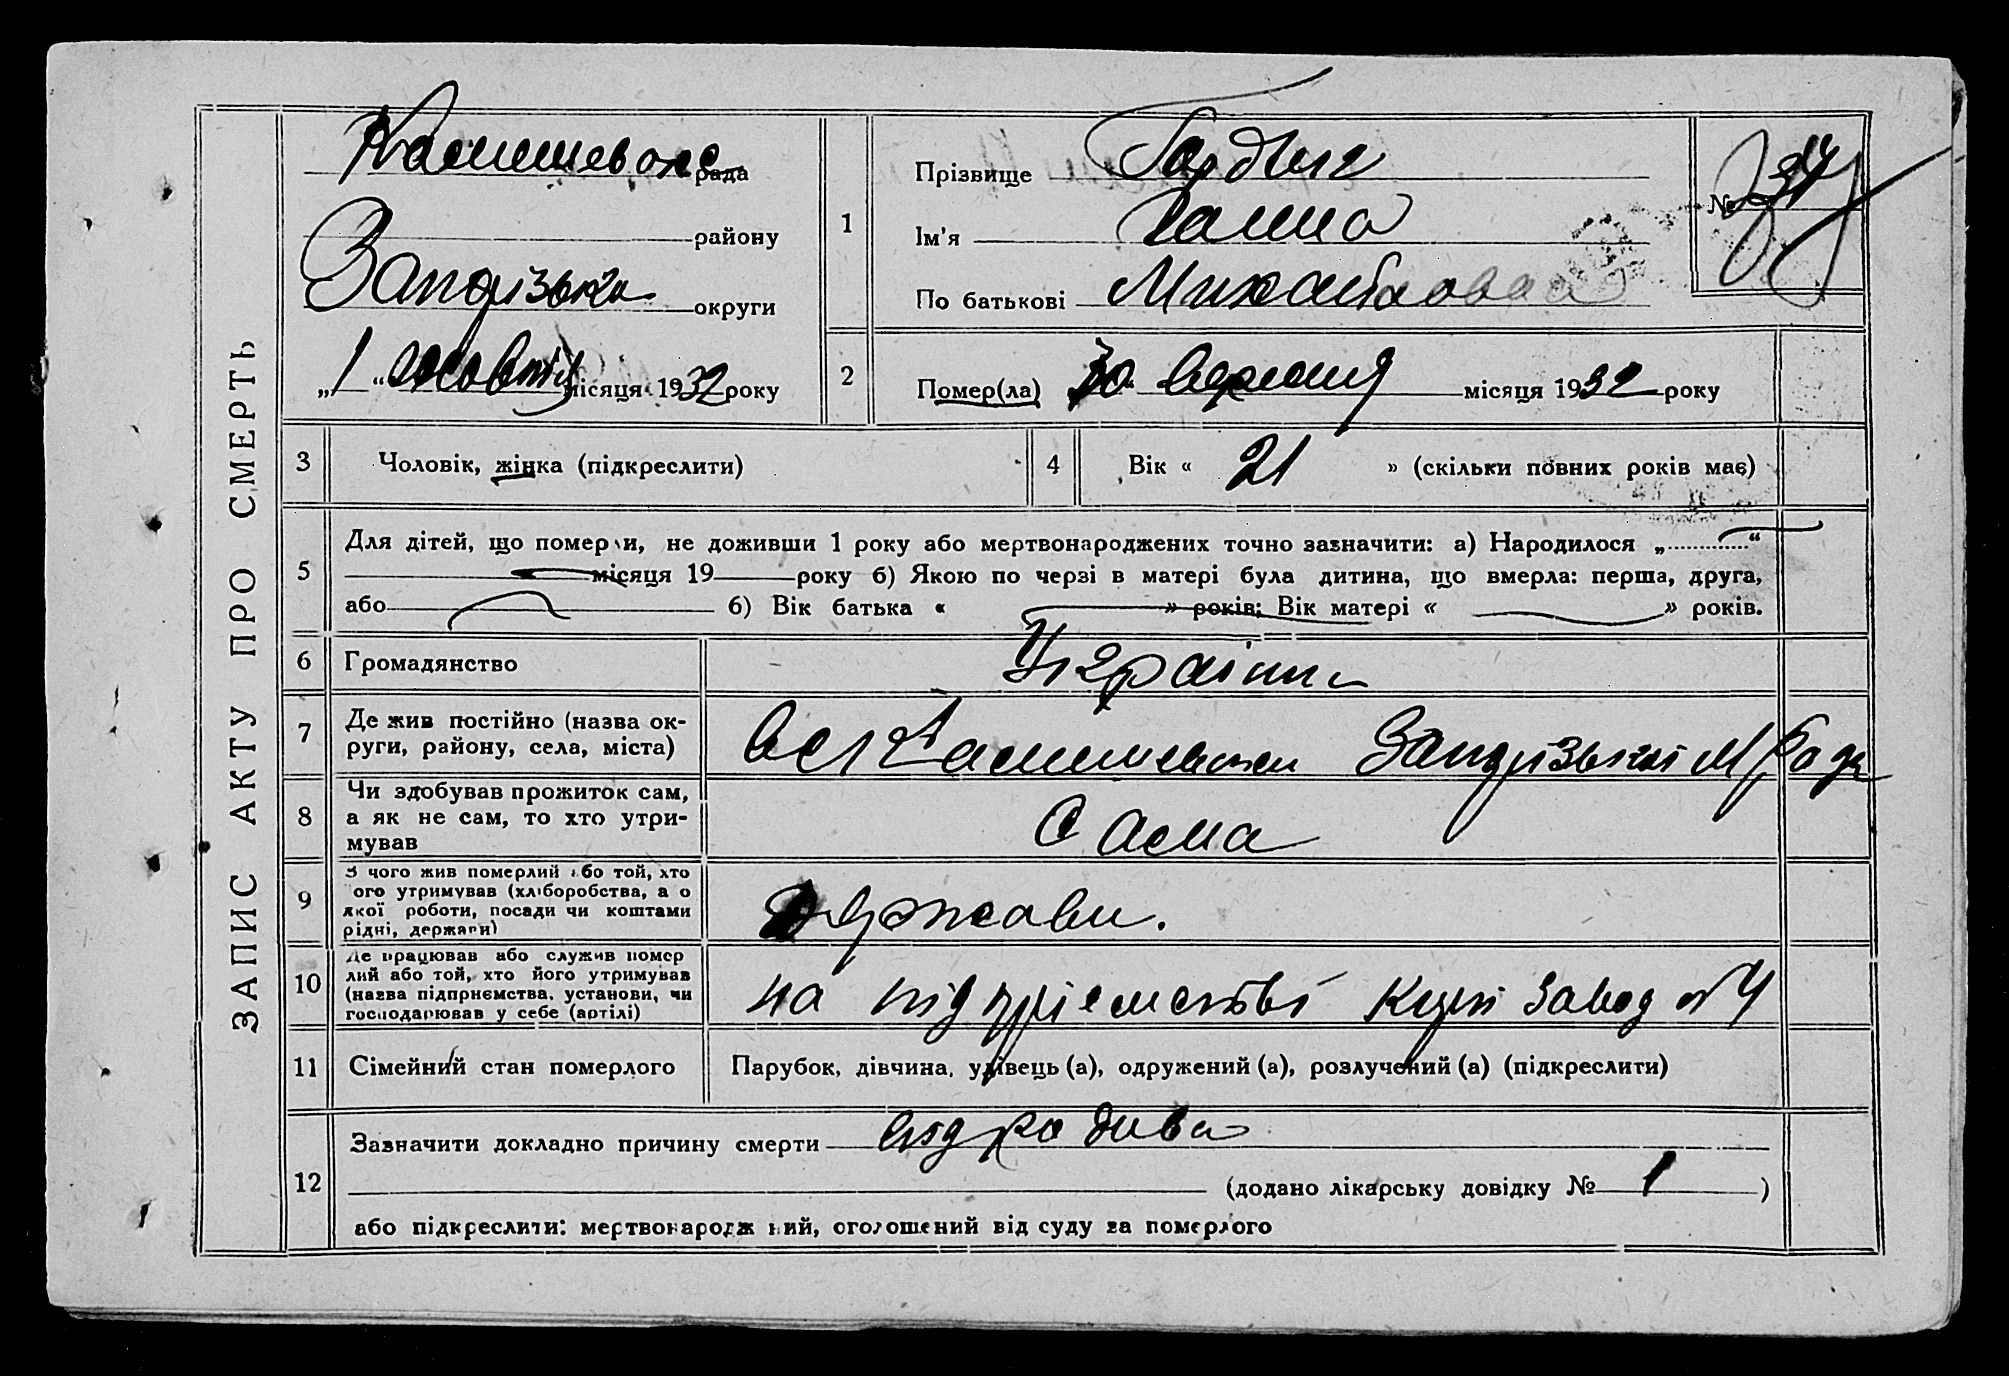 ЗАПИС АКТУ ПРО СМЕРТЬ
рада
району
округи
„1“ жовтня місяця 1932 року
1
Прізвище
Ім'я Ганна
По батькові Михайловна
№ 34
2
Помер(ла) 30 вересня місяця 1932 року
3 Чоловік, жінка (підкреслити)
4 Вік « 21 » (скільки повних років має)
5
Для дітей, що померли, не доживши 1 року або мертвонароджених точно зазначити: а) Народилося „ “
місяця 19 року б) Якою по черзі в матері була дитина, що вмерла: перша, друга,
або б) Вік батька « » років; Вік матері « » років.
6 Громадянство
7 Де жив постійно (назва ок-
руги, району, села, міста)
8 Чи здобував прожиток сам,
а як не сам, то хто утри-
мував
Сама
9 З чого жив померлий або той, хто
ого утримував (хліборобства, а о
якої роботи, посади чи коштами
рідні, держави)
Держави.
10 Де працював або служив помер
лий або той, хто його утримував
(назва підприємства, установи, чи
господарював у себе (артілі)
на підприємстві завод №4
11 Сімейний стан померлого
Парубок, дівчина, удівець (а), одружений (а), розлучений (а) (підкреслити)
12
Зазначити докладно причину смерти
(додано лікарську довідку № 1 )
або підкреслити: мертвонародж ний, оголошений від суду за померлого